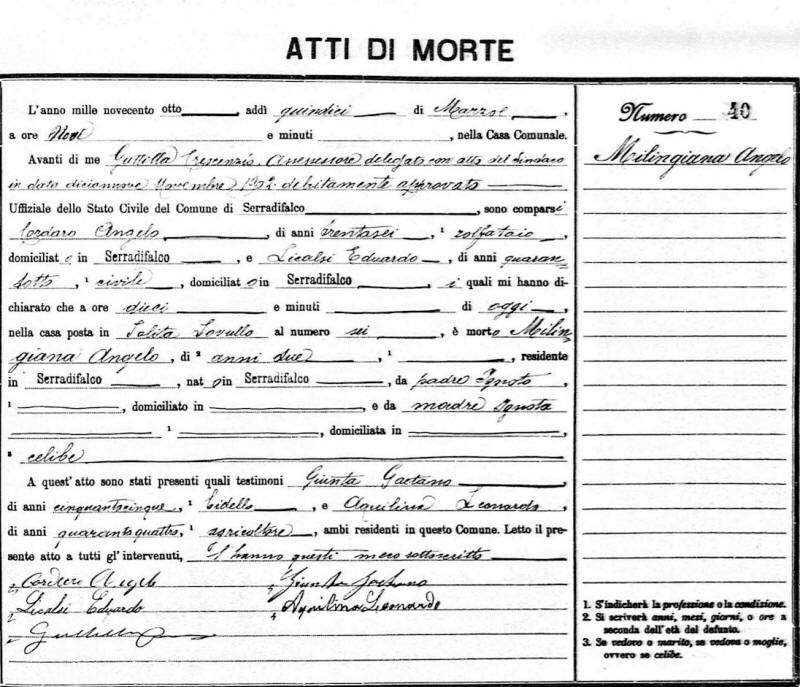 ATTI DI MORTE
L'anno mille novecento otto, addì quindici di Marzo,
a ore nove e minuti, nella Casa Comunale.
Avanti di me Guttilla Crescenzio, Assessore delegato con atto del Sindaco
in data diciannove Novembre 1902 debitamente approvato
Uffiziale dello Stato Civile del Comune di Serradifalco, sono comparsi
Cordaro Angelo, di anni trentasei, ¹ zolfataio,
domiciliato in Serradifalco, e Licalsi Eduardo, di anni quaran
totto, ¹ civile, domiciliato in Serradifalco, i quali mi hanno di-
chiarato che a ore dieci e minuti di oggi,
nella casa posta in Salita Lovullo al numero sei, è morto Milin
giana Angelo, di ² anni due, ¹, residente
in Serradifalco, nato in Serradifalco, da padre ignoto,
¹, domiciliato in, e da madre ignota
¹, domiciliata in,
³ celibe
A quest'atto sono stati presenti quali testimoni Giunta Gaetano
di anni cinquantacinque, ¹ bidello, e Aquilina Leonardo,
di anni quarantaquattro, ¹ agricoltore, ambi residenti in questo Comune. Letto il pre-
sente atto a tutti gl'intervenuti, l'hanno questi meco sottoscritto
Cordaro Angelo Giunta Gaetano
Licalsi Eduardo Aquilina Leonardo
Numero 40
Milingiana Angelo
1. S'indicherà la professione o la condizione.
2. Si scriverà anni, mesi, giorni, o ore a
seconda dell'età del defunto.
3. Se vedovo o marito, se vedova o moglie,
ovvero se celibe.